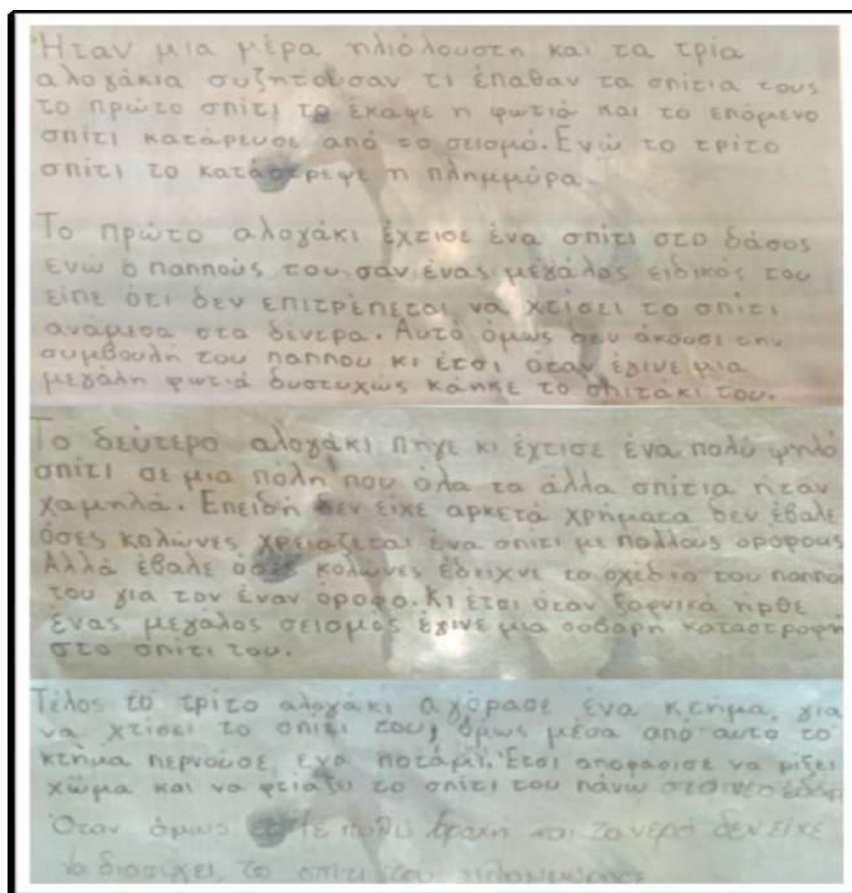 Ήταν μια μέρα ηλιόλουστη και τα τρία
αλογάκια συζητούσαν τι έπαθαν τα σπίτια τους
το πρώτο σπίτι το έκαψε η φωτιά και το επόμενο
σπίτι κατάρευσε από το σεισμό. Ενώ το τρίτο
σπίτι το κατάστρεψε η πλημμύρα.
Το πρώτο αλογάκι έχτισε ένα σπίτι στο δάσος
ενώ ο παππούς του σαν ένας μεγάλος ειδικός του
είπε ότι δεν επιτρέπεται να χτίσει το σπίτι
ανάμεσα στα δέντρα. Αυτό όμως δεν άκουσε την
συμβουλή του παππου κι έτσι όταν έγινε μια
μεγάλη φωτιά δυστυχώς κάηκε το σπιτάκι του.
Το δεύτερο αλογάκι πήγε κι έχτισε ένα πολύ ψηλό
σπίτι σε μια πόλη που όλα τα άλλα σπίτια ήταν
χαμηλά. Επειδή δεν είχε αρκετά χρήματα δεν έβαλε
όσες κολώνες χρειάζεται ένα σπίτι με πολλους ορόφους
Αλλά έβαλε όσες κολώνες έδειχνε το σχέδιο του παππού
του για τον έναν όροφο. Κι έτσι όταν ξαφνικά ήρθε
ένας μεγάλος σεισμός έγινε μια σοβαρή καταστροφή
στο σπίτι του.
Τέλος το τρίτο αλογάκι αγόρασε ένα κτήμα, για
να χτίσει το σπίτι του, όμως μέσα από αυτό το
κτήμα περνούσε ένα ποτάμι. Έτσι αποφάσισε να ρίξει
χώμα και να φτιάξει το σπίτι του πάνω στο νέο
Όταν όμως πολύ βροχή και το νερό δεν είχε
να διασχίσει, το σπίτι του